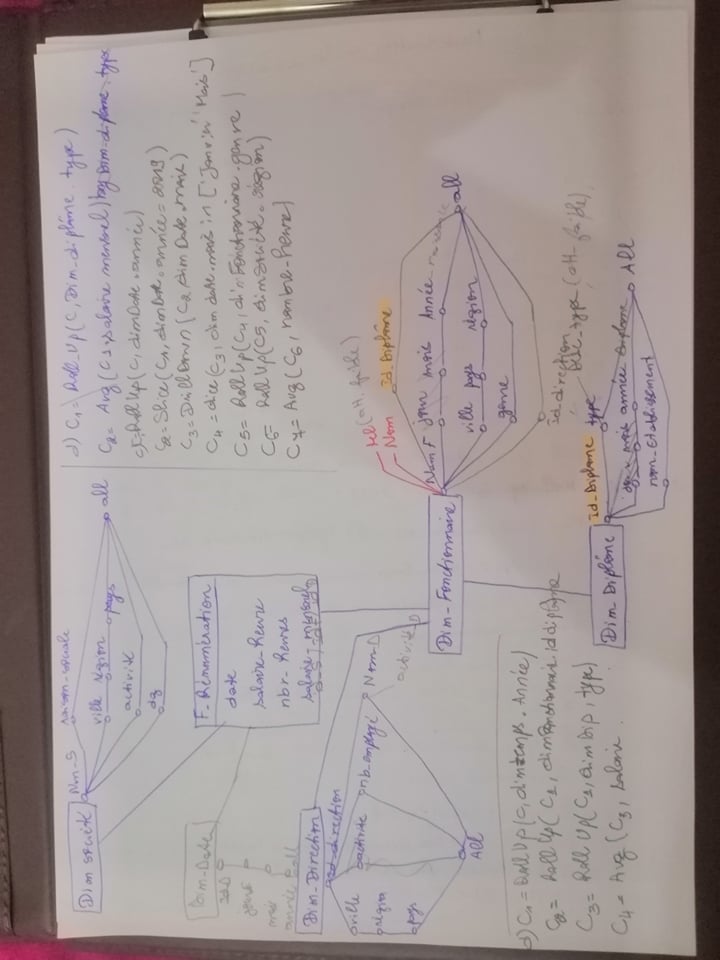 Dim société
Num-S
raison-sociale
ville région pays
activité
all
Dim-Date
Id.D
jour
mois
année all
F-Rémunération
date
salaire-heure
nbr-heures
salaire-mensuel
Dim-Direction
id-direction
ville
activité
nb-employé
Nom-D
région
pays
activité D
All
Dim-Fonctionnaire
tel (att. faible)
Nom
Id_Diplôme
Num F
jour mois Année naissance
ville pays région
genre
all
Id_direction
Dim_Diplôme
Id_Diplome type
Desc_type (att-faible)
jour mois année Diplome
nom-Etablissement
All
d) C1 = Roll_Up(C, Dim_diplôme.type)
C2 = Avg (C1, salaire mensuel) by Dim-diplome.type
C1 = Roll Up(C, dimDate.année)
C2 = Slice (C1, dimDate.année = 2019)
C3 = DrillDown (C2, dim Date.mois)
C4 = dice (C3, dim date.mois in ['Janvier' 'Mars']
C5 = Roll Up(C4, dimFonctionnaire.genre)
C6 = Roll Up(C5, dimSociété.région)
C7 = Avg (C6, nombre-heure)
d) C1 = Roll Up (C, dimtemps.Année)
C2 = Roll Up (C1, dimFonctionnaire.Iddiplôme
C3 = Roll Up(C2, dimDip, type)
C4 = Avg (C3, salaire